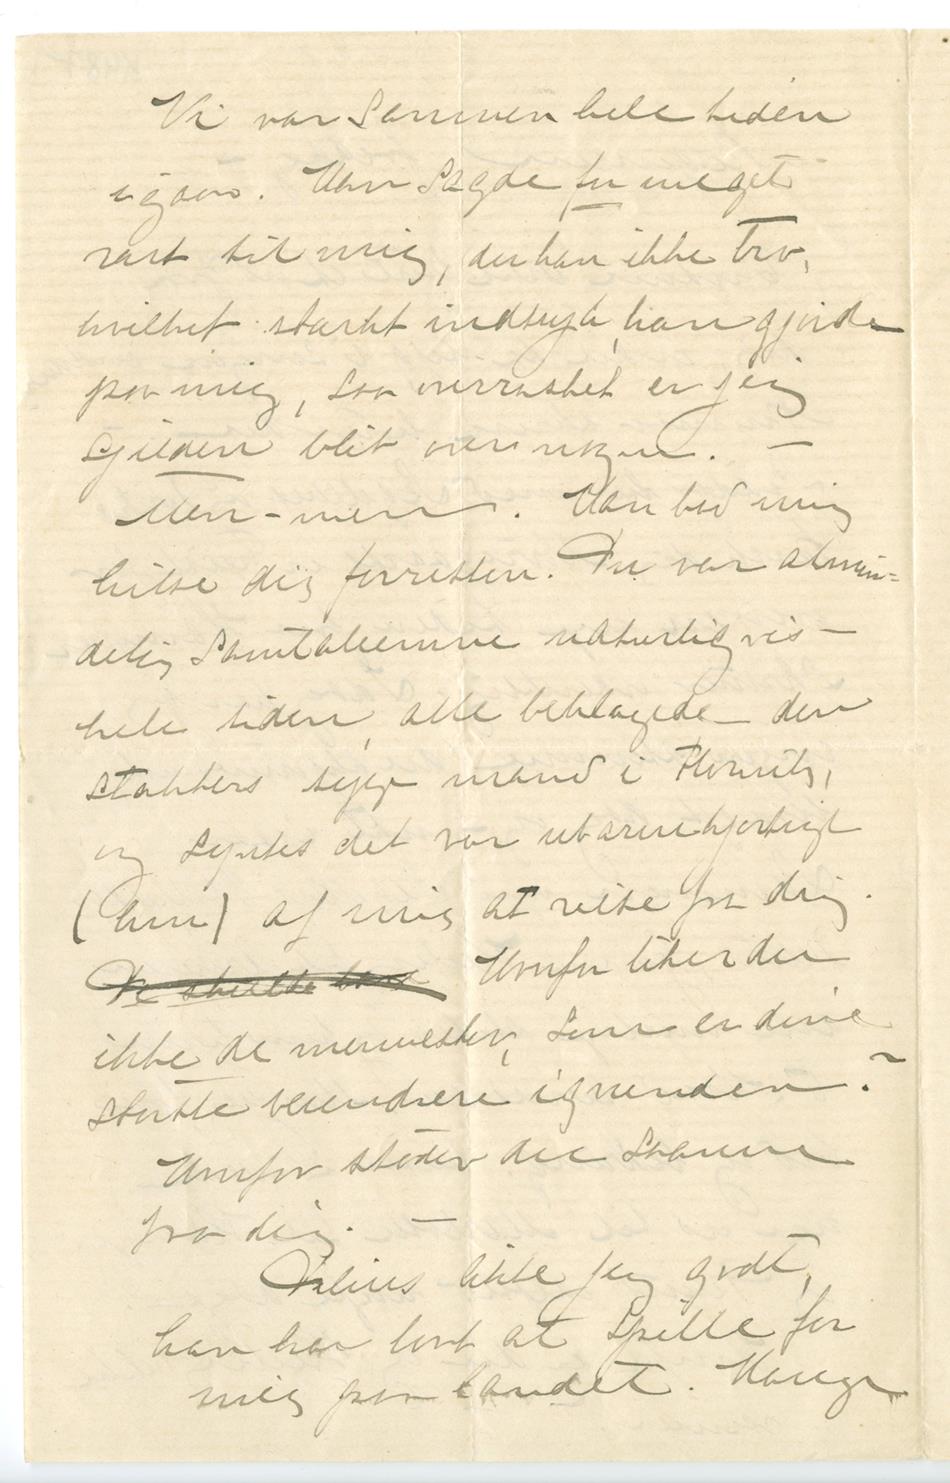 Vi var sammen hele tiden
igaar. Han sagde for meget
rart til mig, du kan ikke tro,
hvilket stærkt indtryk han gjorde
paa mig, saa overrasket er jeg
sjelden blit over nogen. —
Men – men. Han bad mig
hilse dig forresten. Du var almin=
delig samtaleemne naturligvis —
hele tiden, alle beklagede den
stakkers syge mand i
og syntes det var ubarmhjertigt
(hun) af mig at reise fra dig.
De skulde bare Hvorfor liker du
ikke de mennesker, som er dine
største beundrere igrunden?
Hvorfor støder du saanne
fra dig. —
likte jeg godt,
han har lovt at spille for
mig paa landet. Mange